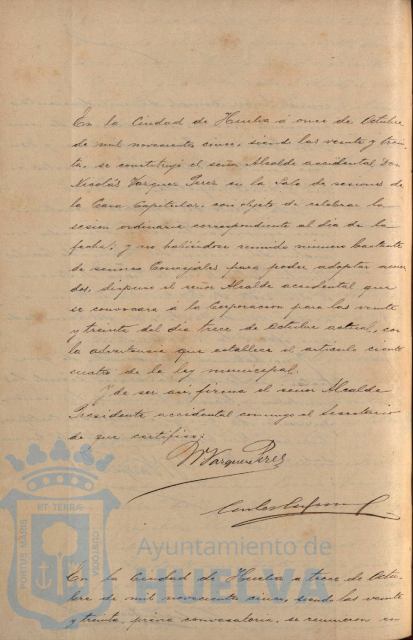 En la Ciudad de Huelva á once de Octubre
de mil novecientos cinco, siendo las veinte y trein-
ta, se constituyó el señor Alcalde accidental Don
Nicolás Vazquez Perez en la Sala de sesiones de
la Casa Capitular, con objeto de celebrar la
sesion ordinaria correspondiente al dia de la
fecha; y no habiendose reunido número bastante
de señores Concejales para poder adoptar acuer-
dos, dispuso el señor Alcalde accidental que
se convocara á la Corporacion para las veinte
y treinta del dia trece de Octubre actual, con
la advertencia que establece el articulo ciento
cuatro de la ley municipal.
Y de ser asi, firma el señor Alcalde
Presidente accidental conmigo el Secretario
de que certifico:
N Vazquez Perez
PORTUS MARIS
ET TERRÆ
CUSTODIA
Ayuntamiento de
HUELVA
En la Ciudad de Huelva a trece de Octu-
bre de mil novecientos cinco, siendo las veinte
y treinta, previa convocatoria, se reunieron en